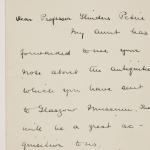 Dear Professor Flinders Petrie
My aunt has
forwarded to me your
note about the antiquities
which you have sent
to Glasgow Museum. They
will be a great ac-
quisition to us.